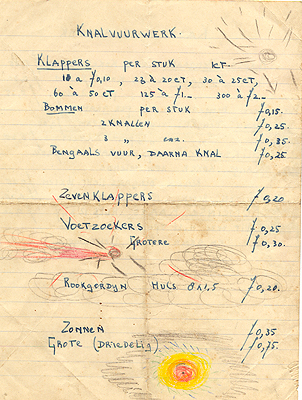 KNALVUURWERK.
KLAPPERS PER STUK 1CT.
10 à ƒ0,10, 23 à 20CT, 30 à 25CT,
60 à 50CT 125 à ƒ1.- 300 à ƒ2.-
BOMMEN PER STUK ƒ0,15.
2 KNALLEN ƒ0,25.
3 " enz. ƒ0,35.
BENGAALS VUUR, DAARNA KNAL ƒ0,25
ZEVENKLAPPERS ƒ0,20
VOETZOEKERS ƒ0,25
GROTERE ƒ0,30.
ROOKGORDYN HULS 8x1,5 ƒ0,20.
ZONNEN ƒ0,35
GROTE (DRIEDELIG) ƒ0,75.